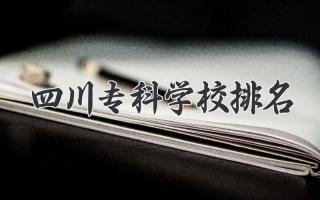 四川专科学校排名